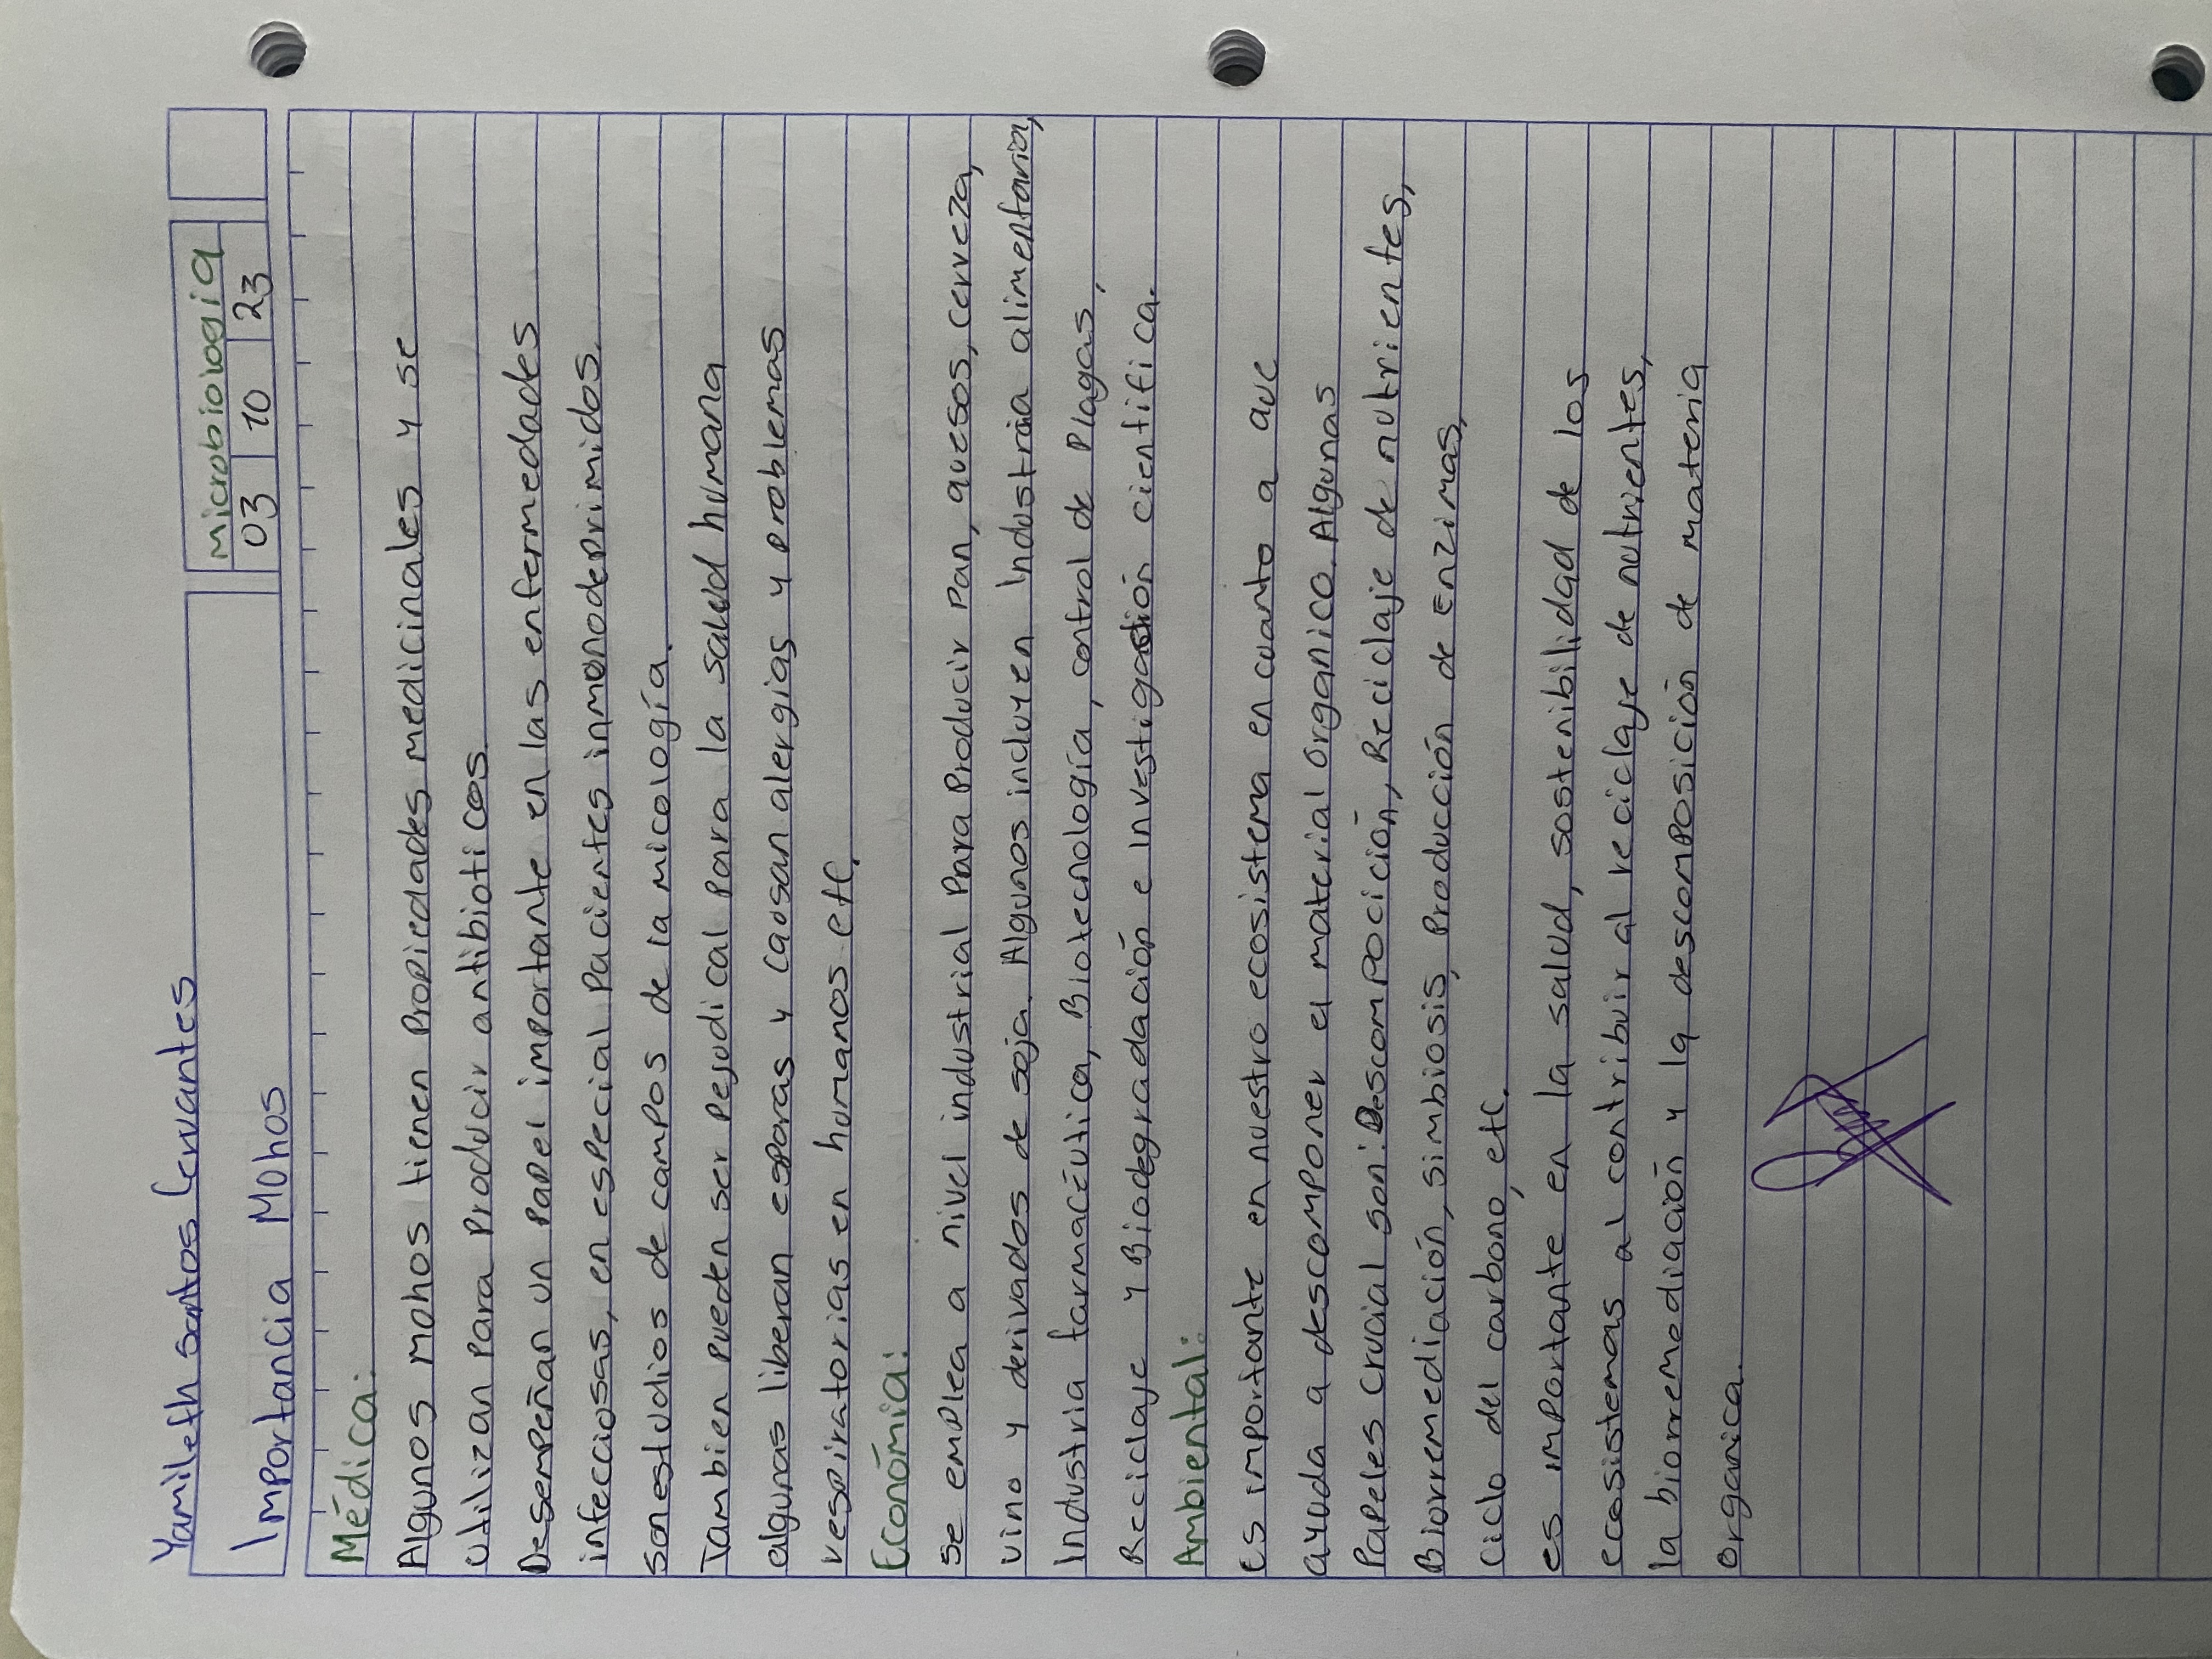 Yamileth santos Cervantes
Microbiología
Importancia Mohos
03 10 23
Médica:
Algunos mohos tienen Propiedades medicinales y se
utilizan Para Producir antibioticos
Desempeñan un Papel importante en las enfermedades
infecciosas, en especial Pacientes inmonodeprimidos.
son estudios de campos de la micología.
Tambien pueden ser Pejudical Para la salud humana
algunas liberan esporas y causan alergias y problemas
respiratorias en humanos etc.
Económia:
se emplea a nivel industrial Para Producir Pan, quesos, cerveza,
vino y derivados de soja. Algunos incluyen Industria alimentaria,
Industria farmacéutica, Biotecnología, control de Plagas,
Reciclaje y Biodegradación e Investigación cientifica.
Ambiental:
Es importante en nuestro ecosistema en cuanto a que
ayuda a descomponer el material organico. Algunas
Papeles crucial son: Descompoción, Reciclaje de nutrientes,
Biorremediación, simbiosis, Producción de Enzimas,
ciclo del carbono, etc.
es importante en la salud, sostenibilidad de los
ecosistemas al contribuir al reciclaje de nutrientes,
la biorremediación y la descomposición de materia
organica.